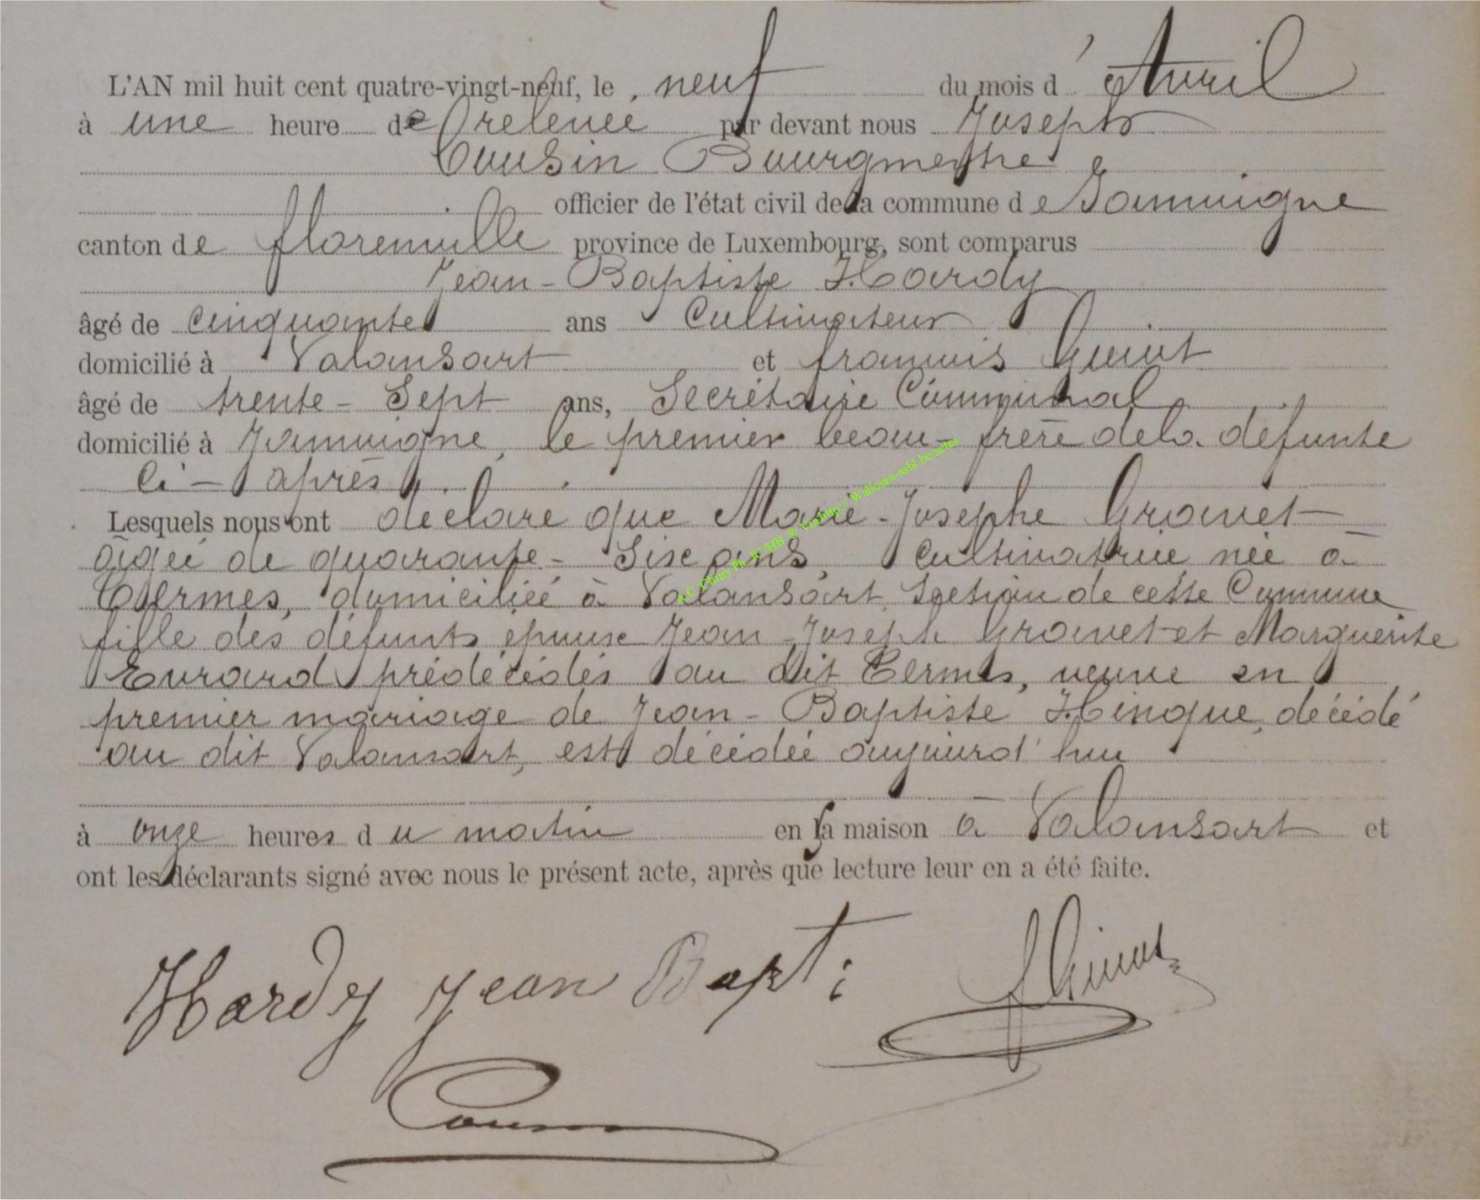 L'AN mil huit cent quatre-vingt-neuf, le neuf du mois d' Avril
à une heure de relevée par devant nous Joseph
Cousin Bourgmestre
officier de l'état civil de la commune de Jamoigne
canton de florenville province de Luxembourg, sont comparus
Jean-Baptiste Hardy
âgé de cinquante ans Cultivateur
domicilié à Valansart et francois Guiot
âgé de trente-Sept ans, Secrétaire Communal
domicilié à Jamoigne, le premier beau-frère de la défunte
Ci-après
Lesquels nous ont déclaré que Marie-Josephe Gravet
âgée de quarante-Six ans, Cultivatrice née à
Termes, domiciliée à Valansart, Section de cette Commune
fille des défunts époux Jean-Joseph Gravet et Marguerite
Evrard prédécédés au dit Termes, veuve en
premier mariage de Jean-Baptiste Hinque, décédé
au dit Valansart, est décédée aujourd'hui
à onze heures du matin en sa maison à Valansart et
ont les déclarants signé avec nous le présent acte, après que lecture leur en a été faite.
Hardy Jean Bapt: f Guiot
Cousin